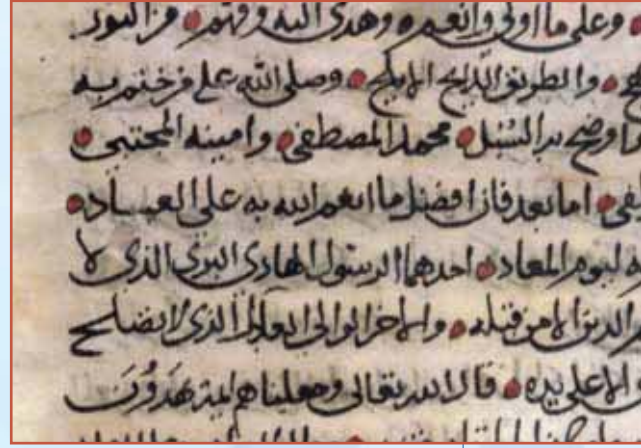 وعلى ما اولى وانعم وهدى اليه وفهم من النور
والطريق الابلج وصلى الله على من ختم به
واوضح به السبل محمد المصطفى وامينه المجتبى
اما بعد فان افضل ما انعم الله به على العباد
ليوم المعاد احدهما الرسول الهادي الذي لا
الدين الا من قبله والاخر الوالي العادل الذي لا يصلح
الا على يده قال الله تعالى وجعلناهم ايمة يهدون